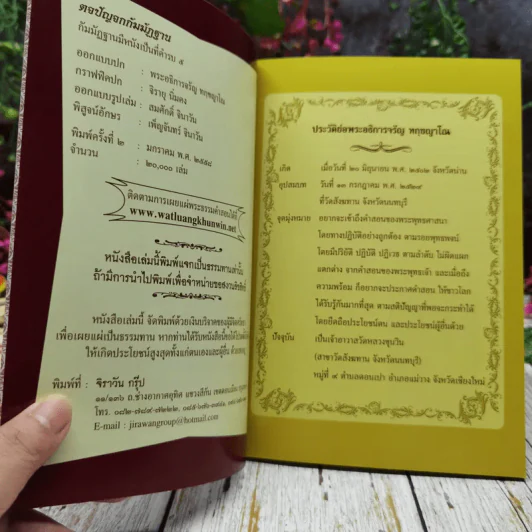 ตจปัญจกกัมมัฏฐาน
กัมมัฏฐานมีหนังเป็นที่คำรบ ๕
ออกแบบปก : พระอธิการจรัญ ทกฺขญาโณ
กราฟฟิคปก : จิรายุ นิ่มดง
ออกแบบรูปเล่ม : สมศักดิ์ จินาวัน
พิสูจน์อักษร : เพ็ญจันทร์ จินาวัน
พิมพ์ครั้งที่ ๒ : มกราคม พ.ศ. ๒๕๕๘
จำนวน : ๒๐,๐๐๐ เล่ม
ติดตามการเผยแผ่พระธรรมคำสอนได้ที่
www.watluangkhunwin.net
หนังสือเล่มนี้พิมพ์แจกเป็นธรรมทานเท่านั้น
ถ้ามีการนำไปพิมพ์เพื่อจำหน่ายขอสงวนสิทธิ์
หนังสือเล่มนี้ จัดพิมพ์ด้วยเงินบริจาคของผู้มีจิตศรัทธา
เพื่อเผยแผ่เป็นธรรมทาน หากท่านได้รับหนังสือ
ให้เกิดประโยชน์สูงสุดทั้งแก่ตนเองและผู้อื่น
พิมพ์ที่ : จิราวัน กรุ๊ป
๑๑/๑๓๖ ถ.ช่างอากาศอุทิศ แขวงสีกัน เขตดอนเมือง
โทร.
E-mail : jirawangroup@hotmail.com
ประวัติย่อพระอธิการจรัญ ทกฺขญาโณ
เกิด เมื่อวันที่ ๒๐ มิถุนายน พ.ศ. ๒๕๐๒ จังหวัดน่าน
อุปสมบท วันที่ ๑๓ กรกฎาคม พ.ศ. ๒๕๒๙
ที่วัดสังฆทาน จังหวัดนนทบุรี
จุดมุ่งหมาย อยากจะเข้าถึงคำสอนของพระพุทธศาสนา
โดยทางปฏิบัติอย่างถูกต้อง ตามรอยพุทธพจน์
โดยมีปริยัติ ปฏิบัติ ปฏิเวธ ตามลำดับ ไม่ผิดแผก
แตกต่าง จากคำสอนของพระพุทธเจ้า และเมื่อถึง
ความพร้อม ก็อยากจะประกาศคำสอน ให้ชาวโลก
ได้รับรู้กันมากที่สุด ตามสติปัญญาที่พอจะกระทำได้
โดยยึดถือประโยชน์ตน และประโยชน์ผู้อื่นด้วย
ปัจจุบัน เป็นเจ้าอาวาสวัดหลวงขุนวิน
(สาขาวัดสังฆทาน จังหวัดนนทบุรี)
หมู่ที่ ๙ ตำบลดอนเปา อำเภอแม่วาง จังหวัดเชียงใหม่